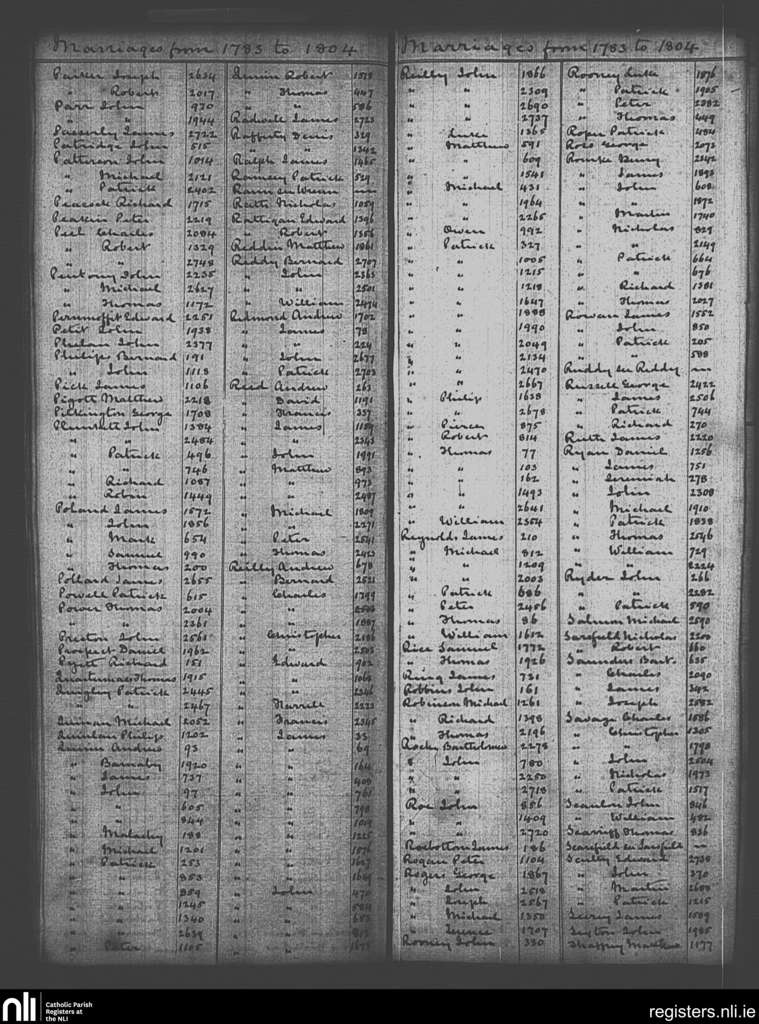 Marriages from 1783 to 1804
Parker Joseph 2634
" Robert 2017
Parr John 970
" " 1944
Passerly James 2722
Patridge John 515
Patterson John 1014
" Michael 2121
" Patrick 2402
Peacock Richard 1715
Peakin Peter 2219
Peel Charles 2084
" Robert 1329
" " 2748
Pentony John 2235
" Michael 2627
" Thomas 1172
Edward 2251
Petit John 1938
Phelan John 2377
Philips Bernard 191
" John 1113
Pick James 1106
Pigott Matthew 2218
Pilkington George 1708
Plunkett John 1384
" " 2484
" Patrick 496
" " 746
" Richard 1087
" Robin 1449
Poland James 1572
" John 1856
" Mark 654
" Samuel 990
" Thomas 200
Pollard James 2655
Powell Patrick 615
Power Thomas 2004
" " 2361
Preston John 2561
Prospect Daniel 1962
Richard 151
Thomas 1915
Quigley Patrick 2445
" " 2467
Quinan Michael 2052
Quinlan Philip 1202
Quinn Andrew 93
" Barnaby 1920
" James 737
" John 97
" " 605
" " 844
" Malachy 188
" Michael 1201
" Patrick 253
" " 853
" " 859
" " 1245
" " 1340
" " 2639
" Peter 1105
Quinn Robert
" Thomas 447
" " 586
Radwell James 2723
Rafferty Denis 329
" " 1342
Ralph James 1465
Ramsey Patrick 529
Rath Nicholas 1059
Rattigan Edward 1396
" Robert 1356
Reddin Matthew 1861
Reddy Bernard 2707
" John 2363
" " 2501
" William 2474
Redmond Andrew 1702
" James 78
" " 224
" John 2677
" Patrick 2703
Reed Andrew 263
" David 1191
" Francis 337
" James 1159
" " 2343
" John 1991
" Matthew 893
" " 973
" " 2487
" Michael 1809
" " 2271
" Peter 2541
" Thomas 2423
Reilly Andrew 678
" Bernard 2521
" Charles 1799
" "
" " 1887
" Christopher 2186
" " 2503
" Edward 902
" " 1063
" " 2346
" 2223
" Francis 2345
" James 33
" " 69
" " 164
" " 409
" " 761
" " 798
" " 1019
" " 1225
" " 1576
" " 1627
" " 1649
" John 470
" " 584
" " 652
" " 813
" " 1673
Marriages from 1783 to 1804
Reilly John 1866
" " 2309
" " 2690
" " 2737
" Luke 1365
" Matthew 591
" " 609
" " 1541
" Michael 431
" " 1964
" " 2265
" Owen 992
" Patrick 327
" " 1005
" " 1215
" " 1218
" " 1647
" " 1888
" " 1990
" " 2049
" " 2134
" " 2470
" " 2667
" Philip 1628
" " 2678
" Pierce 875
" Robert 814
" Thomas 77
" " 103
" " 162
" " 1493
" " 2641
" William 2354
Reynolds James 210
" Michael 812
" " 1209
" " 2003
" Patrick 686
" Peter 2456
" Thomas 86
" William 1612
Rice Samuel 1772
" Thomas 1926
Ring James 731
Robbins John 161
Robinson Michael 1261
" Richard 1398
" Thomas 2196
Rocky Bartholmew 2278
" John 780
" " 2250
" " 2718
Roe John 856
" " 1409
" " 2720
Rorbotton James 186
Rogan Peter 1104
Rogers George 1867
" John 2518
" Joseph 2567
" Michael 1350
" Terence 1707
Rooney John 330
Rooney Luke 1876
" Patrick 1905
" Peter 2382
" Thomas 449
Roper Patrick 484
Ross George 2073
Rourke Henry 2342
" James 1893
" John 608
" " 1872
" Martin 1740
" Nicholas 829
" " 2149
" Patrick 664
" " 676
" Richard 1381
" Thomas 2027
Rowan James 1552
" John 850
" Patrick 205
" " 588
Ruddy see Reddy —
Russell George 2422
" James 2506
" Patrick 744
" Richard 270
Ruth James 2220
Ryan Daniel 1256
" James 751
" Jeremiah 278
" John 2308
" Michael 1910
" Patrick 1838
" Thomas 2546
" William 729
" " 2224
Ryder John 266
" " 2282
" Patrick 590
Salmon Michael 2590
Sarsfield Nicholas 2200
" Robert 660
Saunders Bart. 635
" Charles 2090
" James 342
" Joseph 2582
Savage Charles 1586
" Christopher 1305
" " 1798
" John 2504
" Nicholas 1973
" Patrick 1517
Scanlon John 846
" William 482
Scarriff Thomas 836
Scarsfield see Sarsfield —
Scully Edward 2738
" John 370
" Martin 2688
" Patrick 1215
James 1509
Sexton John 1985
1177
nli
Catholic Parish
Registers at
the NLI
registers.nli.ie